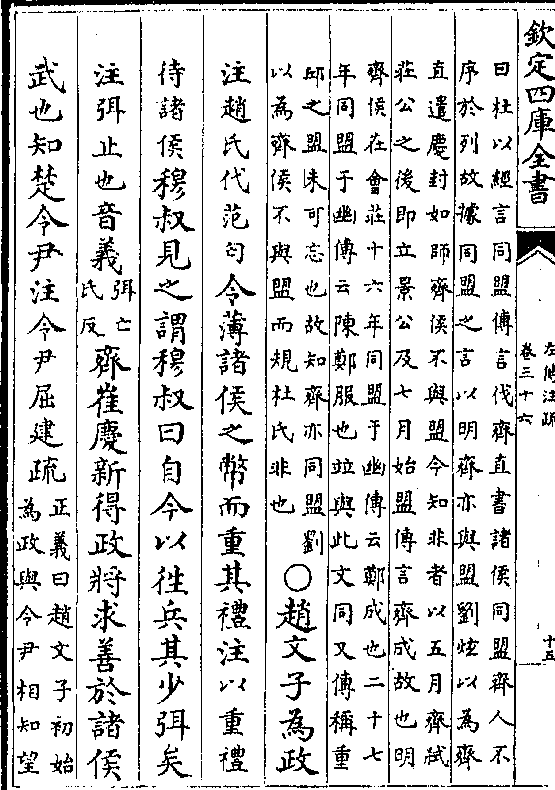 欽定四庫全書
左傳注疏
卷三十六
十五
曰杜以經言同盟傳言伐齊直書諸侯同盟齊人不
序於列故據同盟之言以明齊亦與盟劉炫以為齊
直遣慶封如師齊侯不與盟今知非者以五月齊弑
莊公之後即立景公及七月始盟傳言齊成故也明
齊侯在會莊十六年同盟于幽傳云鄭成也二十七
年同盟于幽傳云陳鄭服也竝與此文同又傳稱重
邱之盟未可忘也故知齊亦同盟劉
以為齊侯不與盟而規杜氏非也
○趙文子為政
注趙氏代范匄令薄諸侯之幣而重其禮注以重禮
待諸侯穆叔見之謂穆叔曰自今以往兵其少弭矣
注弭止也音義弭亡氏反齊崔慶新得政將求善於諸侯
武也知楚令尹注令尹屈建疏正義曰趙文子初始
為政與令尹相知望